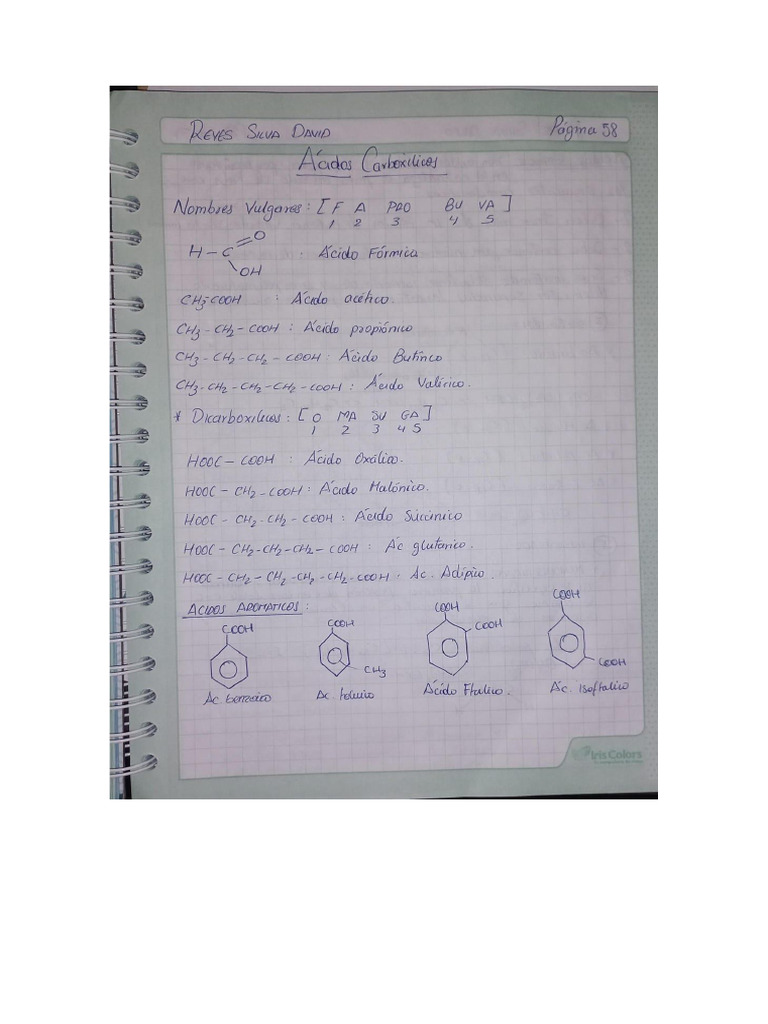 REYES SILVA DAVID Página 58
Ácidos Carboxilicos
Nombres Vulgares: [F A PRO BU VA]
1 2 3 4 5
H - C
O
OH
: Ácido Fórmica
CH3-COOH : Ácido acético.
CH3-CH2-COOH : Ácido propiónico
CH3-CH2-CH2-COOH : Ácido Butírico
CH3-CH2-CH2-CH2-COOH : Ácido Valírico.
* Dicarboxilicos: [O MA SU GA]
1 2 3 4 5
HOOC-COOH : Ácido Oxálico.
HOOC-CH2-COOH : Ácido Malónico.
HOOC-CH2-CH2-COOH : Ácido Succinico
HOOC-CH2-CH2-CH2-COOH : Ác. glutarico.
HOOC-CH2-CH2-CH2-CH2-COOH : Ac. Adípico.
ACIDOS AROMATICOS :
COOH COOH COOH COOH COOH
CH3 COOH
Ac. benzoico Ac. toluico Ácido Ftalico. Ác. isoftalico
Iris Colors